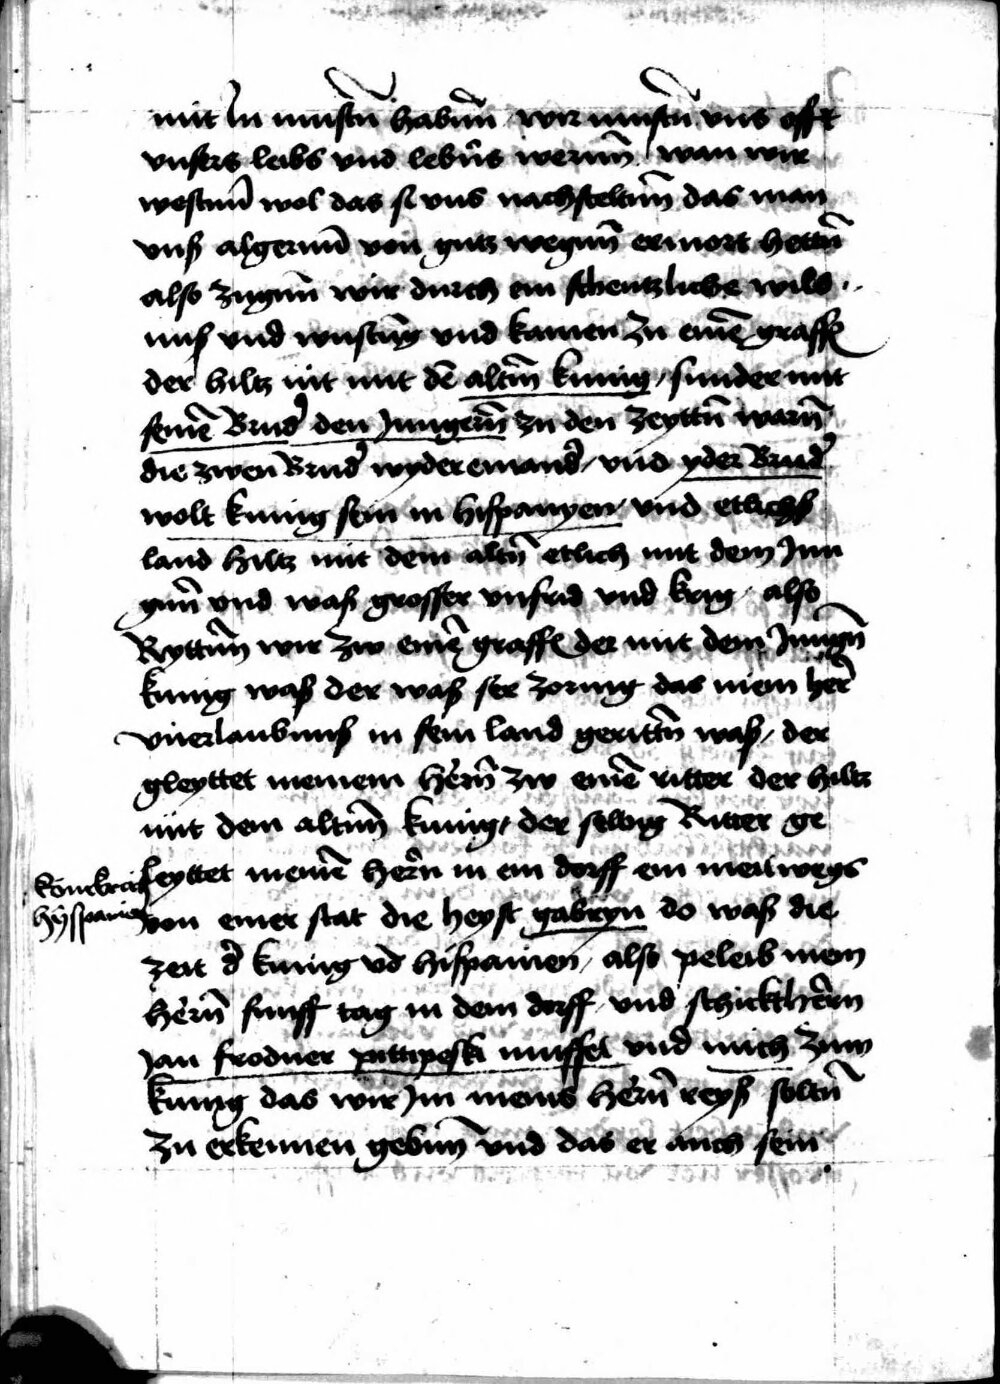 mit In mustn̄ habnn̄ wir mustn̄ vns offt
vnsers leibs vnd lebn̄s wernn̄ / wan wir
westnn̄ wol das si vns nachsteltnn̄ das man
vnß algernn̄ von gutz wegnn̄ ermort hettn̄
also zugnn̄ wir durch ein scheutzliche wild
nuß vnd wustūg vnd kamen zu einē graffn̄
der hiltz nit mit dē altnn̄ kunig / sunder mit
seinē Brud̓ den Jungernn̄ zu den zeyttn̄ warn̄
die zwen Brud̓ wyder einand̓ / vnd yder Brud̓
wolt kunig sein in hispanyen / vnd etlichs
land hiltz mit dem altn̄ etlich mit dem Jun
gnn̄ vnd waß grosser vnfrid vnd krig / also
Ryttnn̄ wir zw einē graffn̄ der mit dem Jungn̄
kunig waß der waß ser zornig das mein her̄
vnerlaubnuß in sein land gerittn̄ waß / der
gleyttet meinem hern̄ zw einē ritter der hiltz
mit dem altnn̄ kunig / der selbig Ritter ge
leyttet meinē hern̄ in ein dorff ein meil wegs
hÿspanie
von einer stat die heyst gabryn do waß die
zeit d̓ kunig vō hispainien / also peleib mein
hern̄ funff tag in dem dorff vnd schickt hern̄
Jan frodner puttipeski muffel vnd mich zum
kunig das wir Im meins hern̄ reyß soltn̄
zu erkennen gebnn̄ vnd das er auch sein